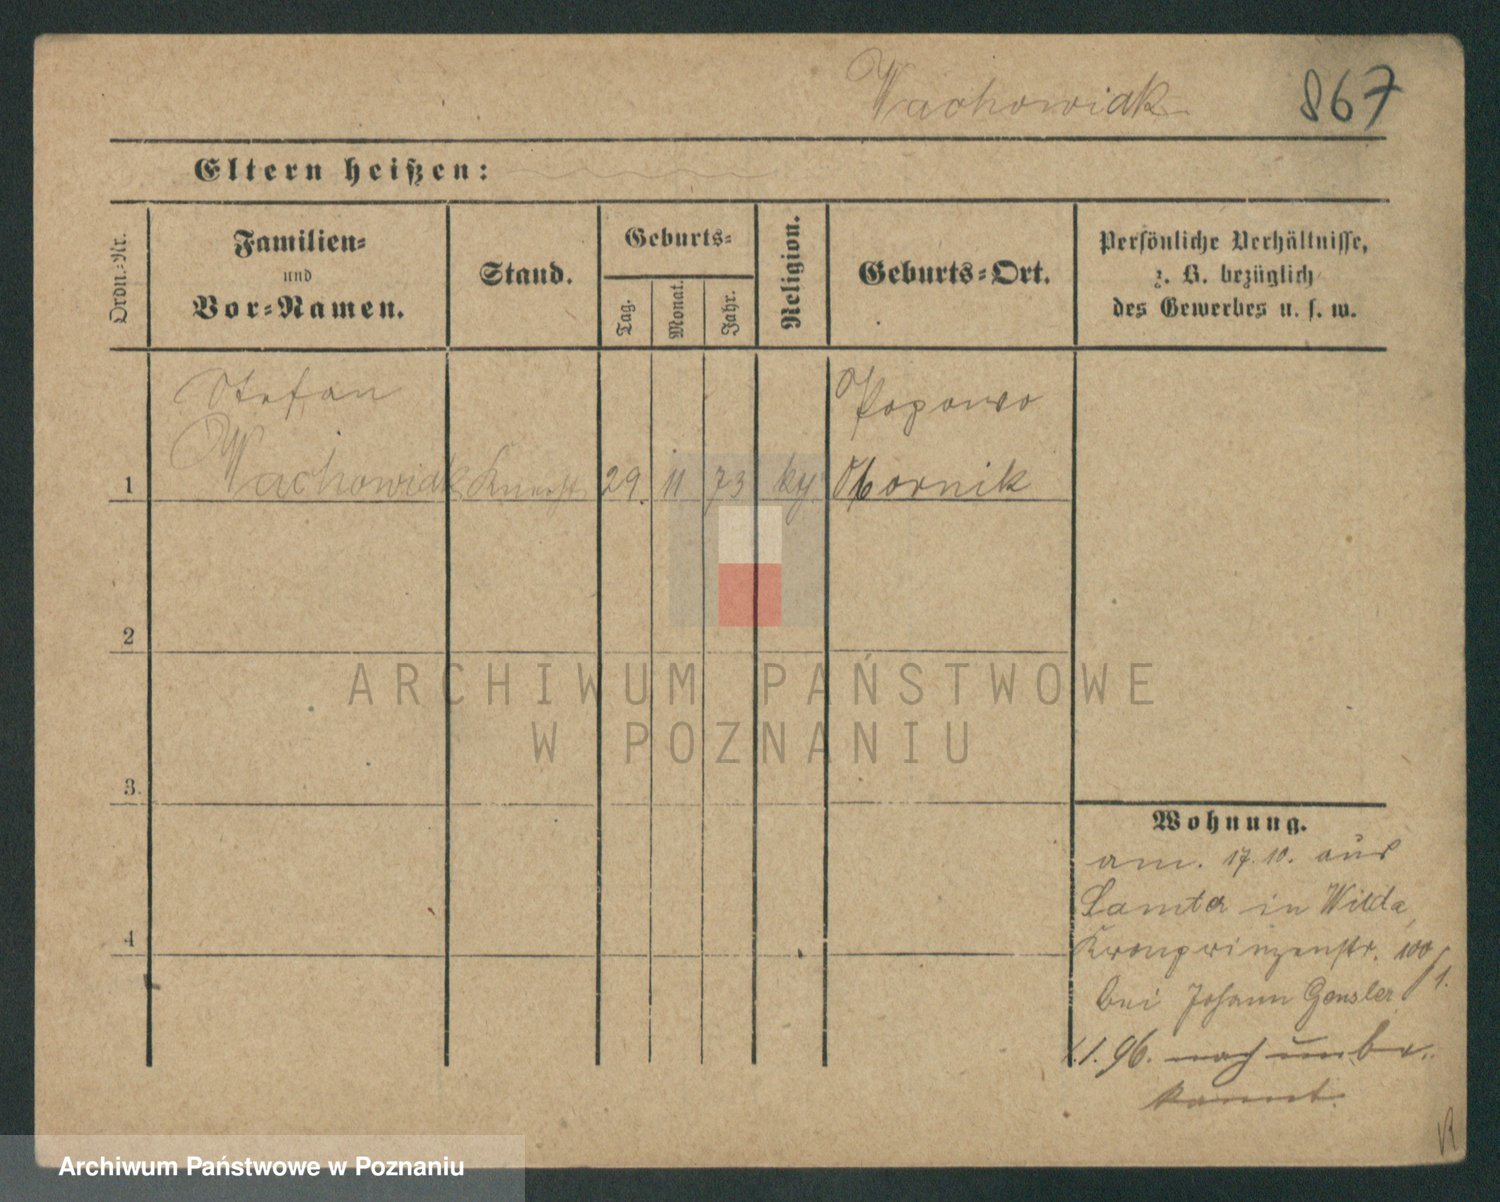 Wachowiak
867
Eltern heißen:
Ordn.-Nr.
Familien-
und
Vor-Namen.
Stand.
Geburts-
Tag.
Monat.
Jahr.
Religion.
Geburts-Ort.
Persönliche Verhältnisse,
z. B. bezüglich
des Gewerbes u. s. w.
Stefan
Popowo
1 Wachowiak Knecht 29. 11 73 Obornik
2
3.
4
ARCHIWUM PAŃSTWOWE
W POZNANIU
Wohnung.
am. 17. 10. aus
Samter in Wilda,
Kronprinzenstr. 100
bei Johann Gensler
1. 96. nach unbe-
kannt.
Archiwum Państwowe w Poznaniu